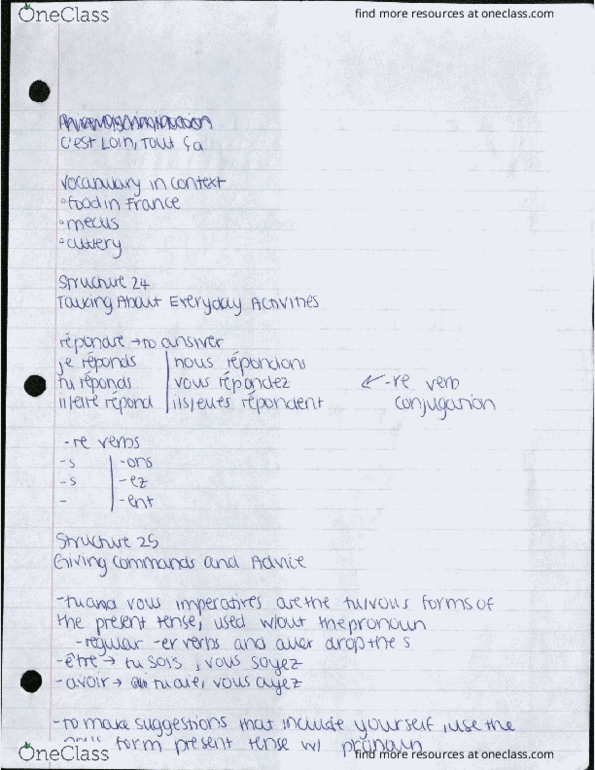 OneClass
find more resources at oneclass.com
C'est Loin, Tout ça
Vocabulary in context
°food in France
°menus
°cutlery
Structure 24
Talking About Everyday Activities
répondre → to answer
je réponds | nous répondons
tu réponds | vous répondez
il/elle répond | ils/elles répondent
← -re verb
conjugation
-re verbs
-s | -ons
-s | -ez
- | -ent
Structure 25
Giving Commands and Advice
-tu and vous imperatives are the tu/vous forms of
the present tense, used w/out the pronoun
-regular -er verbs and aller drop the s
-être → tu sois, vous soyez
-avoir → tu aie, vous ayez
-to make suggestions that include yourself, use the
form present tense w/ pronoun
OneClass
find more resources at oneclass.com